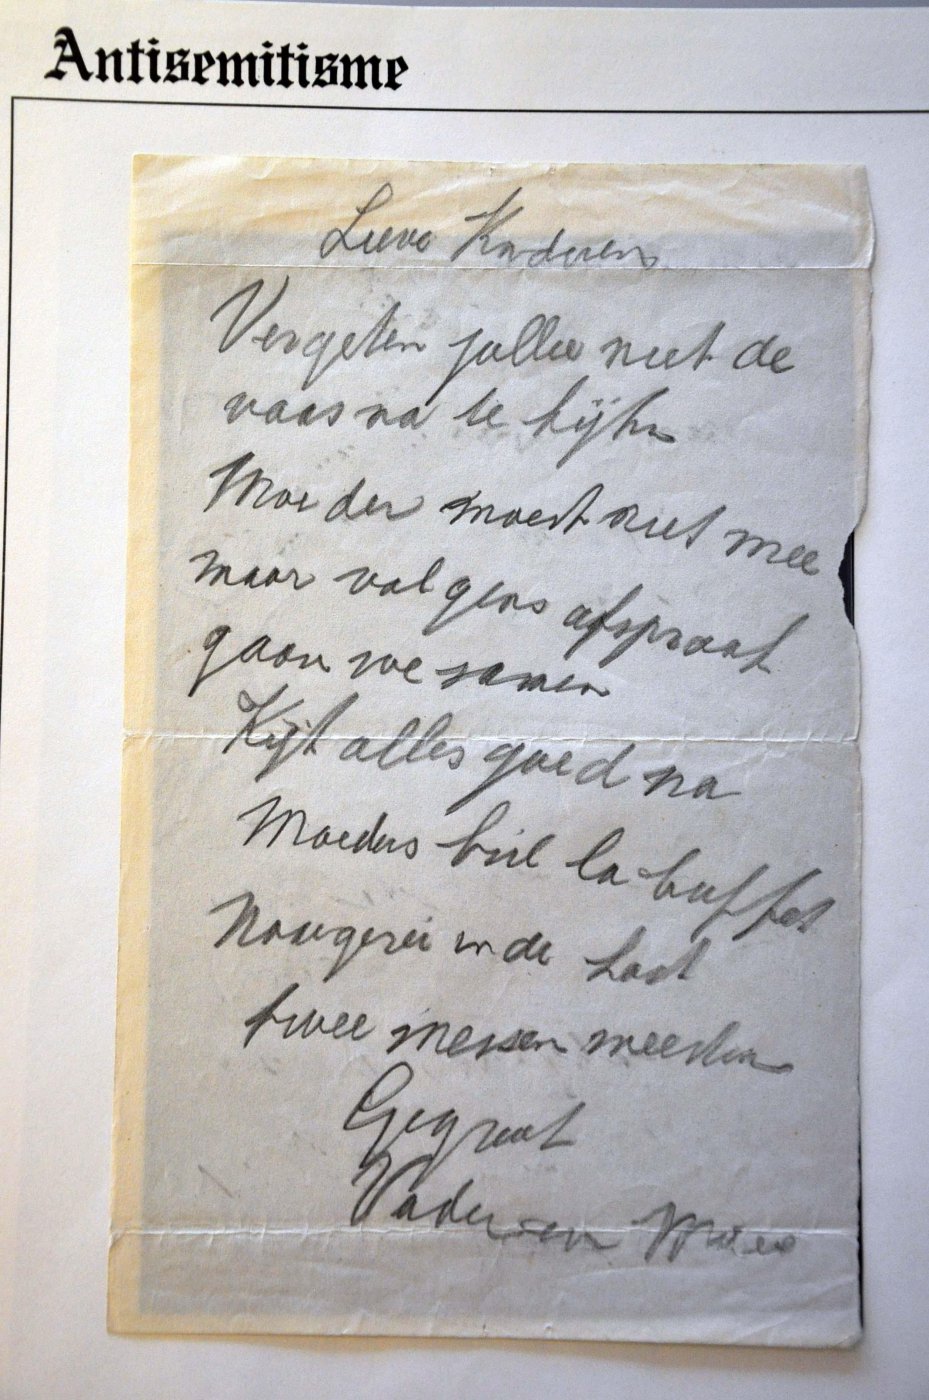 Antisemitisme
Lieve Kinderen
Vergeten jullie niet de
vaas na te kijken
Moeder moest niet mee
maar volgens afspraak
gaan we samen
Kijk alles goed na
Moeders la buffet
Naaigerei in de kast
twee messen
Gegroet
Vader en